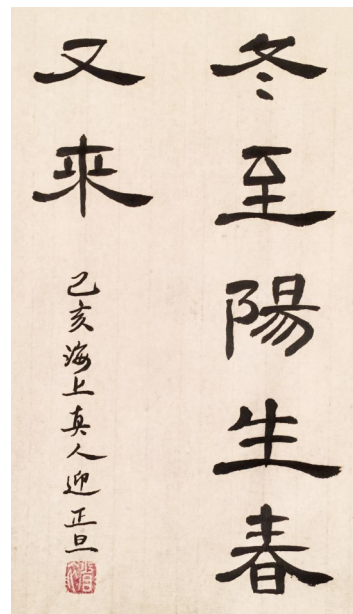 冬至陽生春
又來
己亥海上真人迎正旦